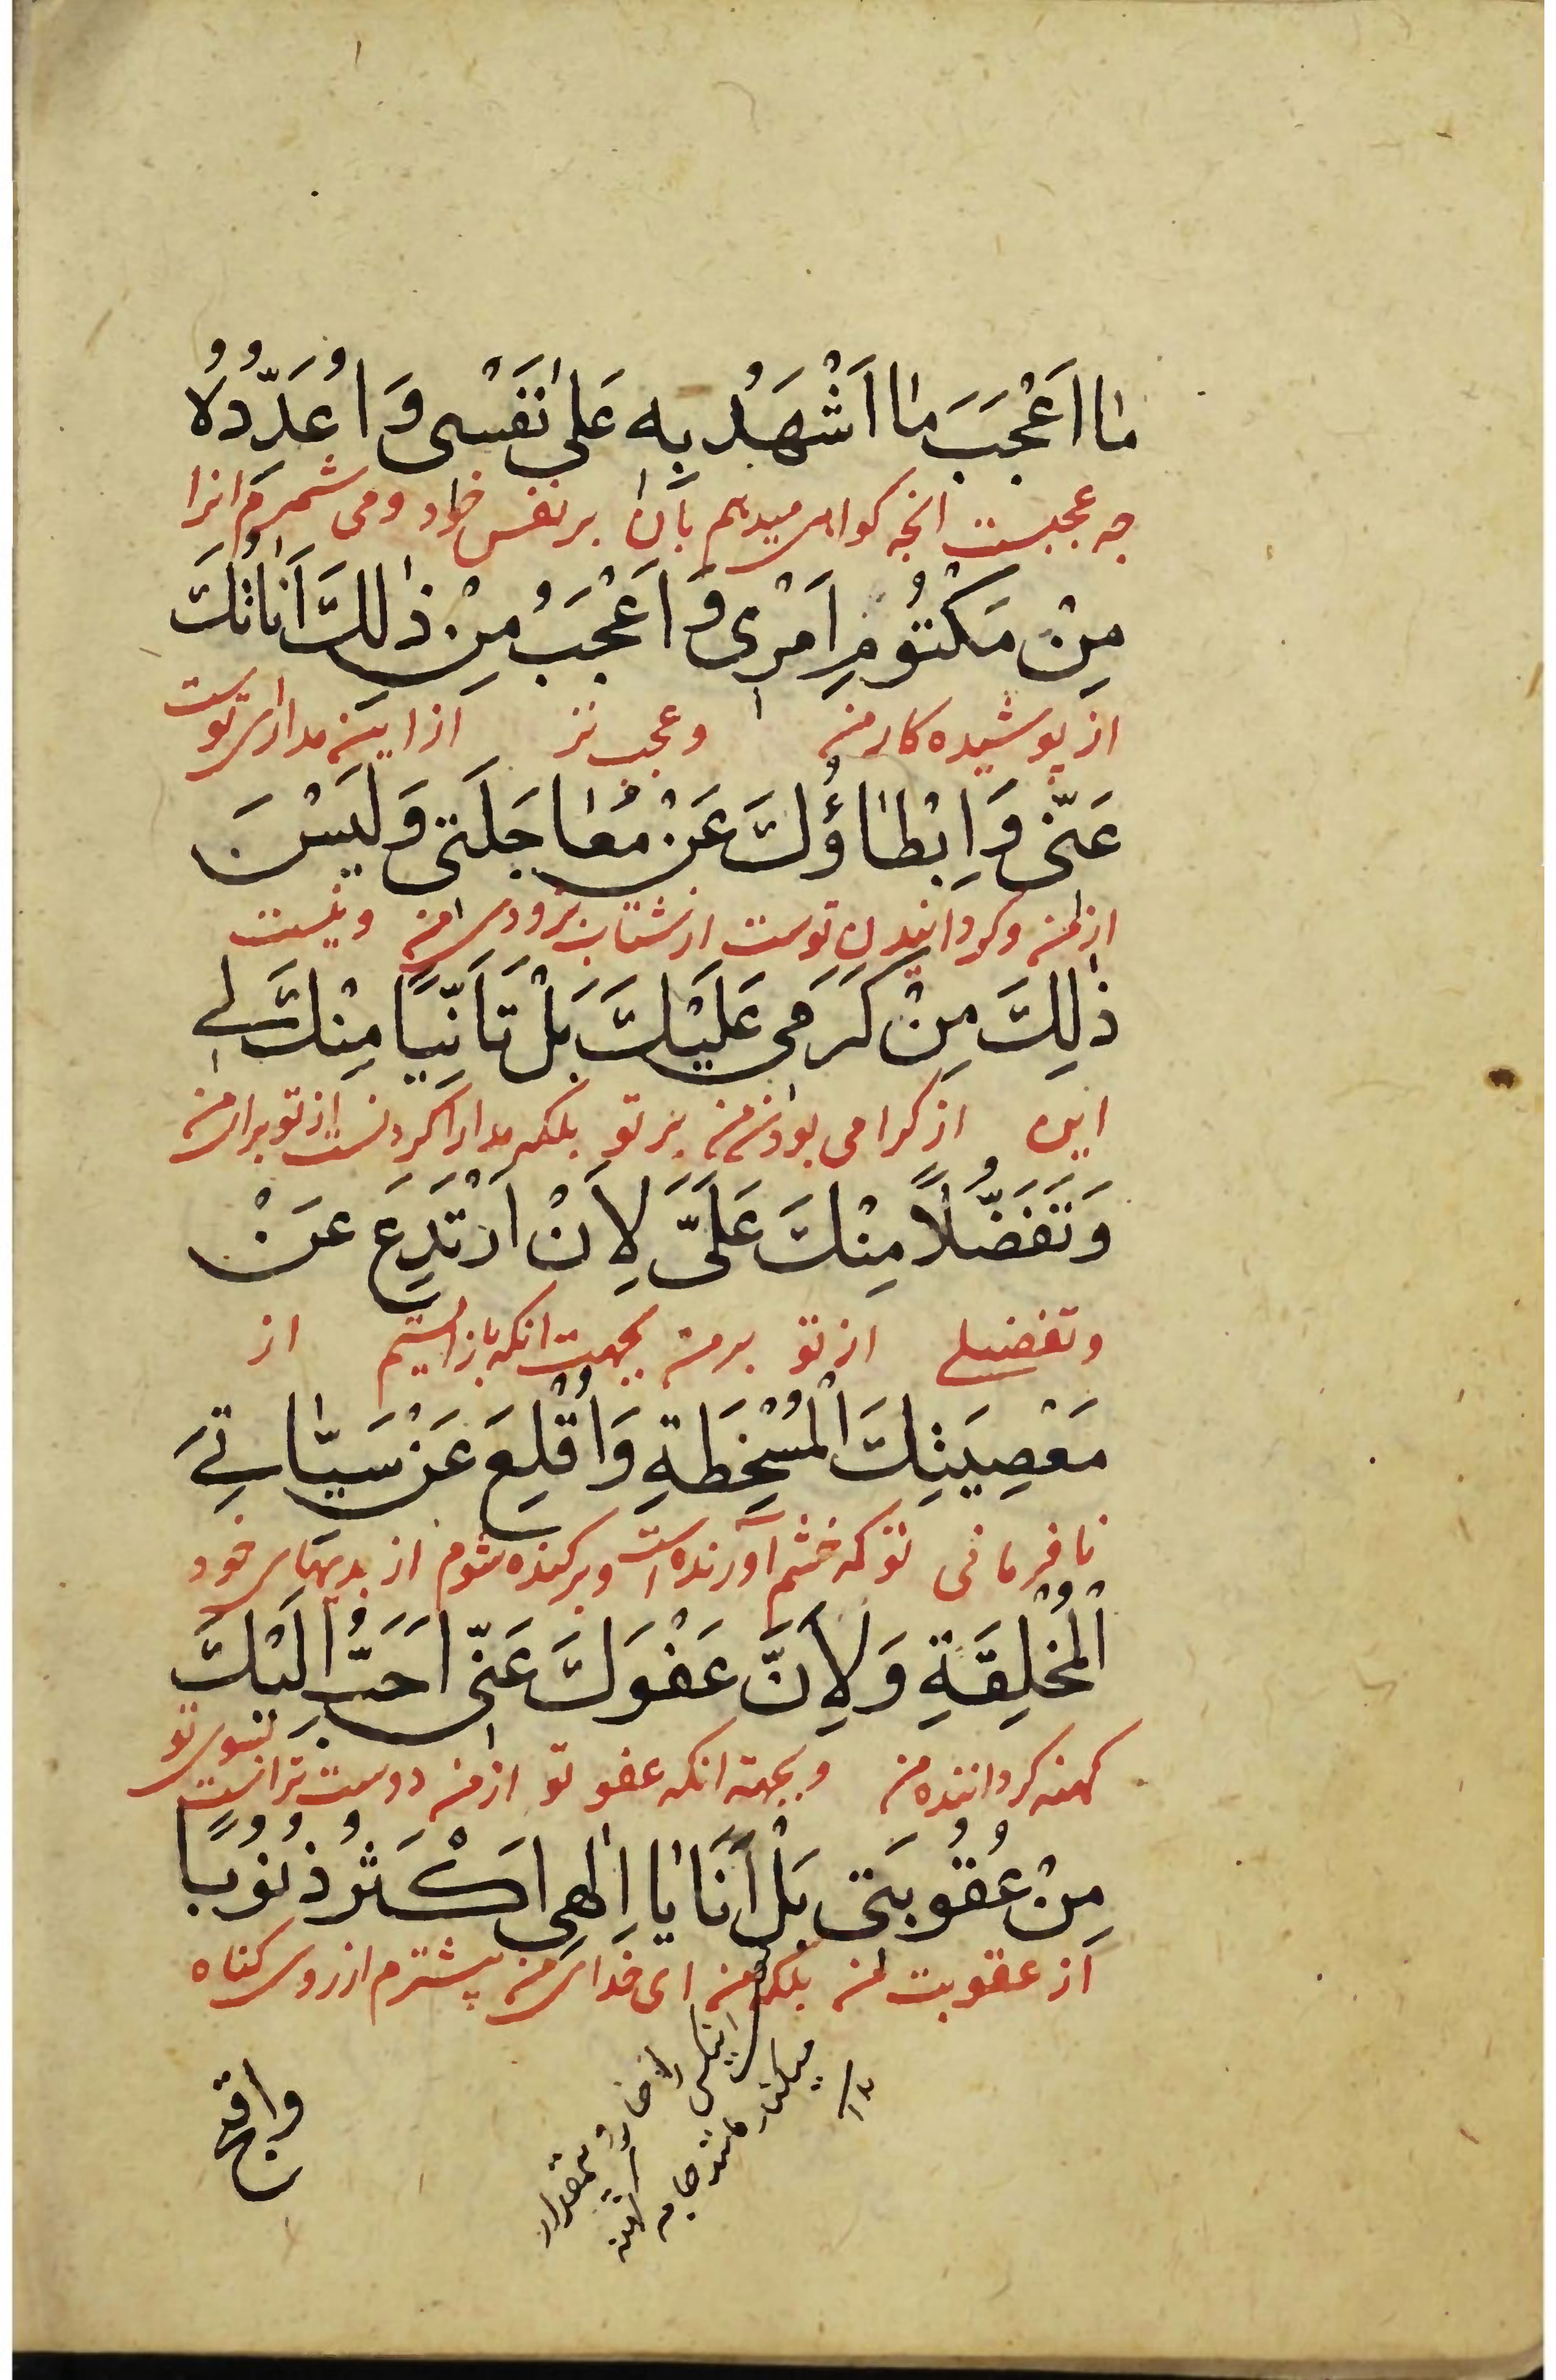 مَا اَعْجَبَ مَا اَشْهَدُ بِهِ عَلٰى نَفْسِى وَ اُعَدِّدُهُ
چه عجبست انچه کواهی میدهم بان بر نفس خود و می شمرم انرا
مِنْ مَكْتُومِ اَمْرِى وَ اَعْجَبُ مِنْ ذٰلِكَ اَنَاتُكَ
از پوشیده کار من و عجب تر از این مدارای توست
عَنّى وَ اِبْطَاؤُكَ عَنْ مُعَاجَلَتى وَ لَيْسَ
از من و توست از شتاب بزودی من و نیست
ذٰلِكَ مِنْ كَرَمى عَلَيْكَ بَلْ تَاَنِّيًا مِنْكَ لى
این از کرامی بودن من بر تو بلکه مدارا کردنست از تو برای من
وَ تَفَضُّلاً مِنْكَ عَلَىَّ لِاَنْ اَرْتَدِعَ عَنْ
و تفضلی از تو بر من بجهت انکه باز ایستم از
مَعْصِيَتِكَ الْمُسْخِطَةِ وَ اُقْلِعَ عَنْ سَيِّاٰتِىَ
نافرمانی تو که خشم آورنده است و برکنده شوم از بدیهای خود
الْمُخْلِقَةِ وَ لِاَنَّ عَفْوَكَ عَنّى اَحَبُّ اِلَيْكَ
کهنه کرداننده من و بجهته انکه عفو تو از من دوست تر است بسوی تو
مِنْ عُقُوبَتى بَلْ اَنَا يَا اِلٰهِى اَكْثَرُ ذُنُوبًا
از عقوبت من بلکه من ای خدای من بیشترم از روی کناه
واقبح